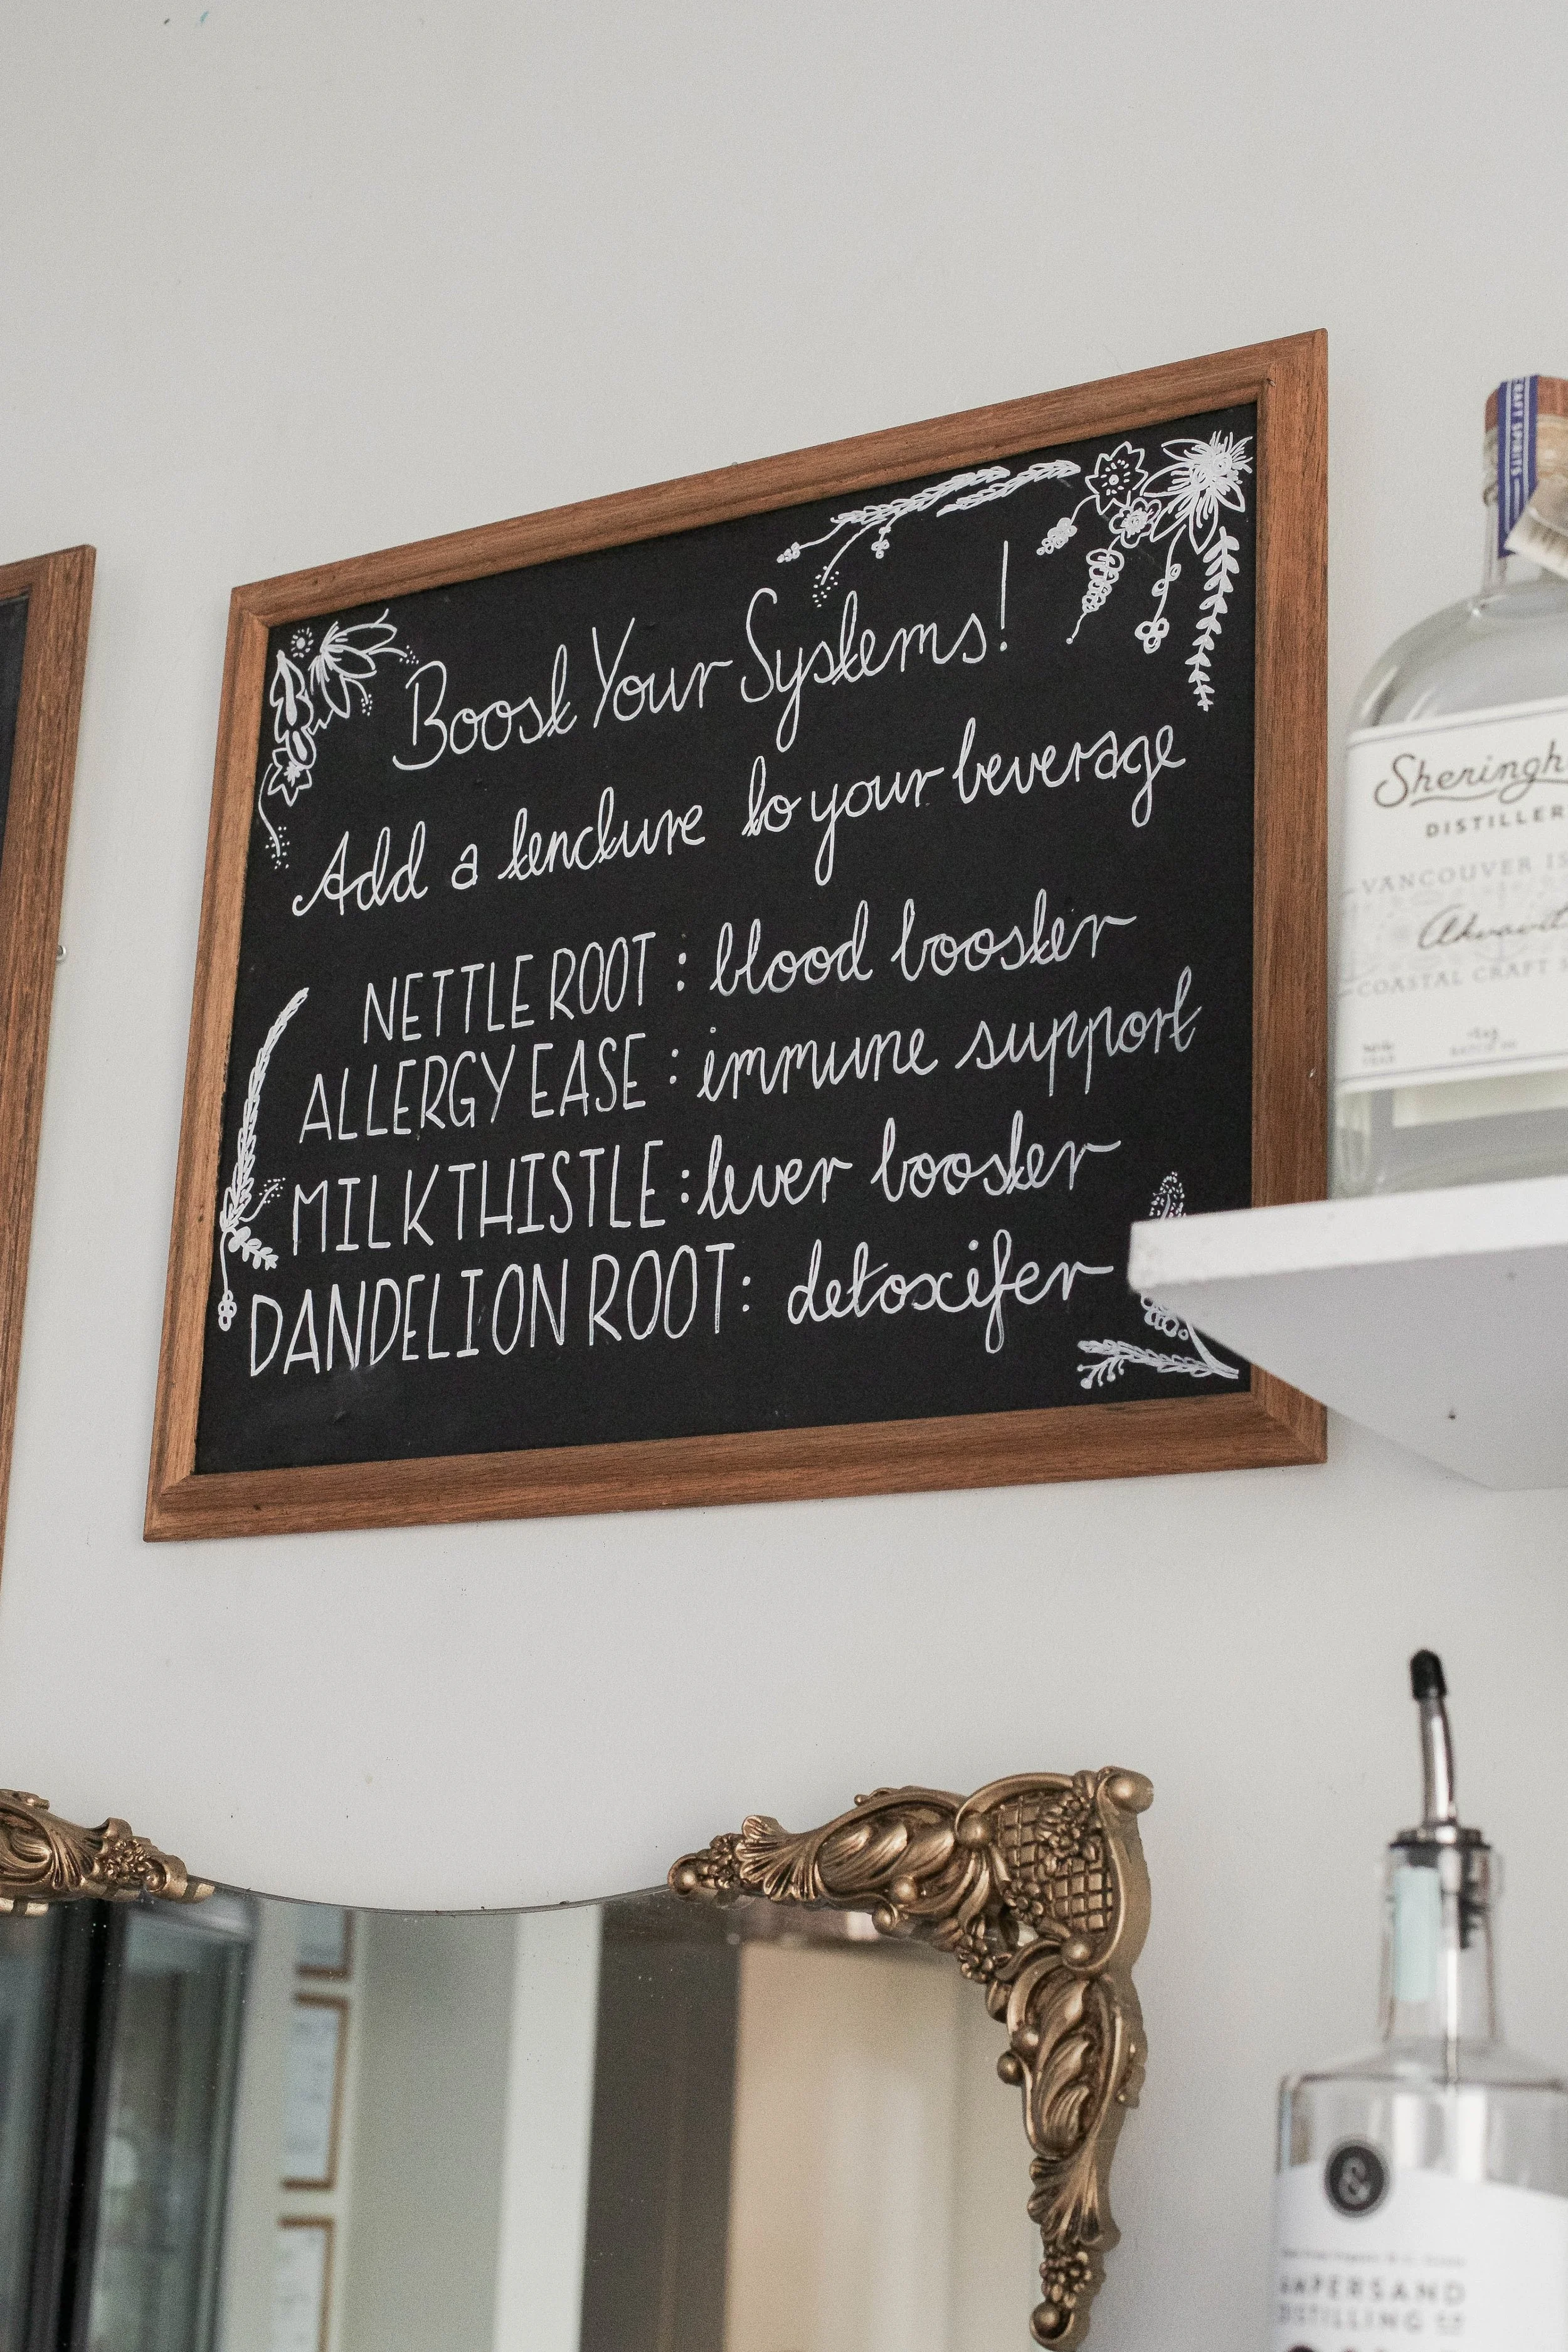 Boost Your Systems!
Add a tincture to your beverage
NETTLE ROOT : blood booster
ALLERGY EASE : immune support
MILK THISTLE : liver booster
DANDELION ROOT : detoxifer
CRAFT SPIRITS
Sheringh
DISTILLER
VANCOUVER IS
Akvavit
COASTAL CRAFT
&
AMPERSAND
DISTILLING CO